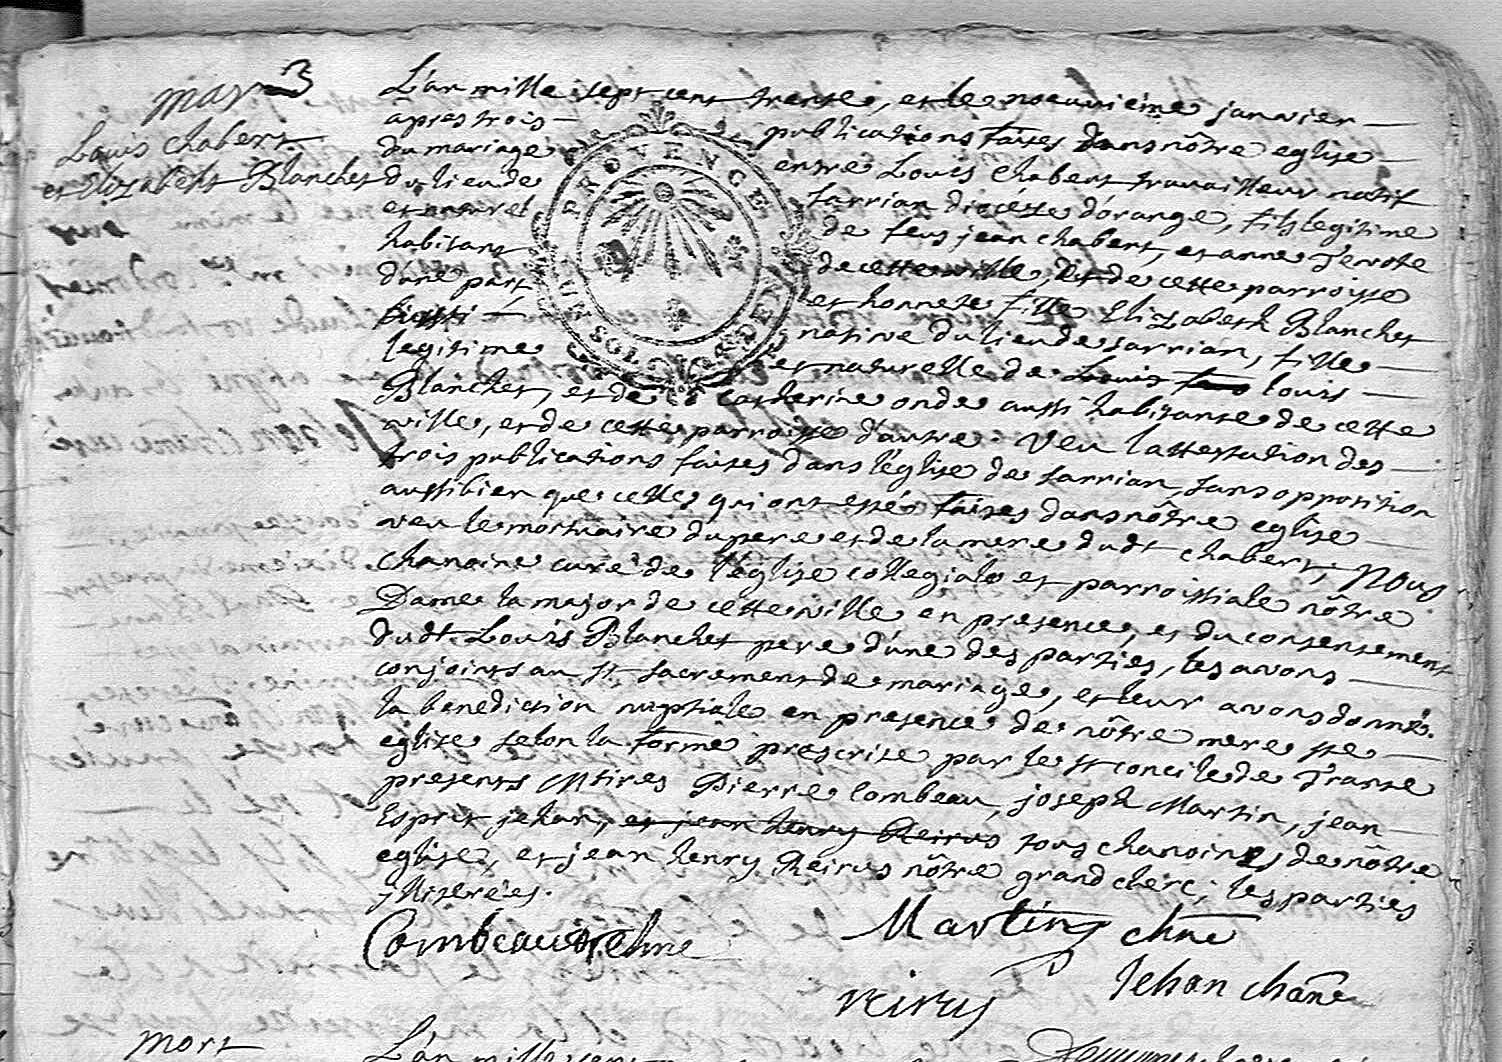 mar 3
Louis chabert
et Elizabeth Blanchet
L'an mille sept cent trente, et le neuvième janvier
apres trois publications faites dans nôtre eglise
du mariage entre Louis Chabert travailleur natif
du lieu de sarrian diocèse d'orange, fils legitime
et naturel de feus jean chabert, et anne
habitans de cette ville, et de cette parroisse
d'une part et honnete fille Elizabeth Blanchet
aussi native du lieu de sarrian, fille
legitime et naturelle de Louis louis
Blanchet, et de catherine onde aussi habitante de cette
ville, et de cette parroisse d'autre. Veu l'attestation des
trois publications faites dans l'église de sarrian sans opposition
aussi bien que celles qui ont esté faites dans nôtre eglise
veu le mortuaire du pere et de la mere dudt chabert, Nous
chanoine curé de l'église collegiale et parroissiale nôtre
Dame la major de cette ville en presence, et du consentement
dudt Louis Blanchet pere d'une des parties, les avons
conjoints au st. sacrement de mariage, et leur avons donné
la benediction nuptiale en presence de nôtre mere ste
eglise selon la forme prescrite par le st concile de Trante
presents Mtires Pierre Combeau, joseph Martin, jean
Esprit jehan, et jean henry Veirus tous chanoines de nôtre
eglise, et jean henry Veirus nôtre grand clerc, les parties
illiterées.
Martin chne
Jehan chane
veirus
PROVENCE
UN SOL
mort
L'an mille sept cent